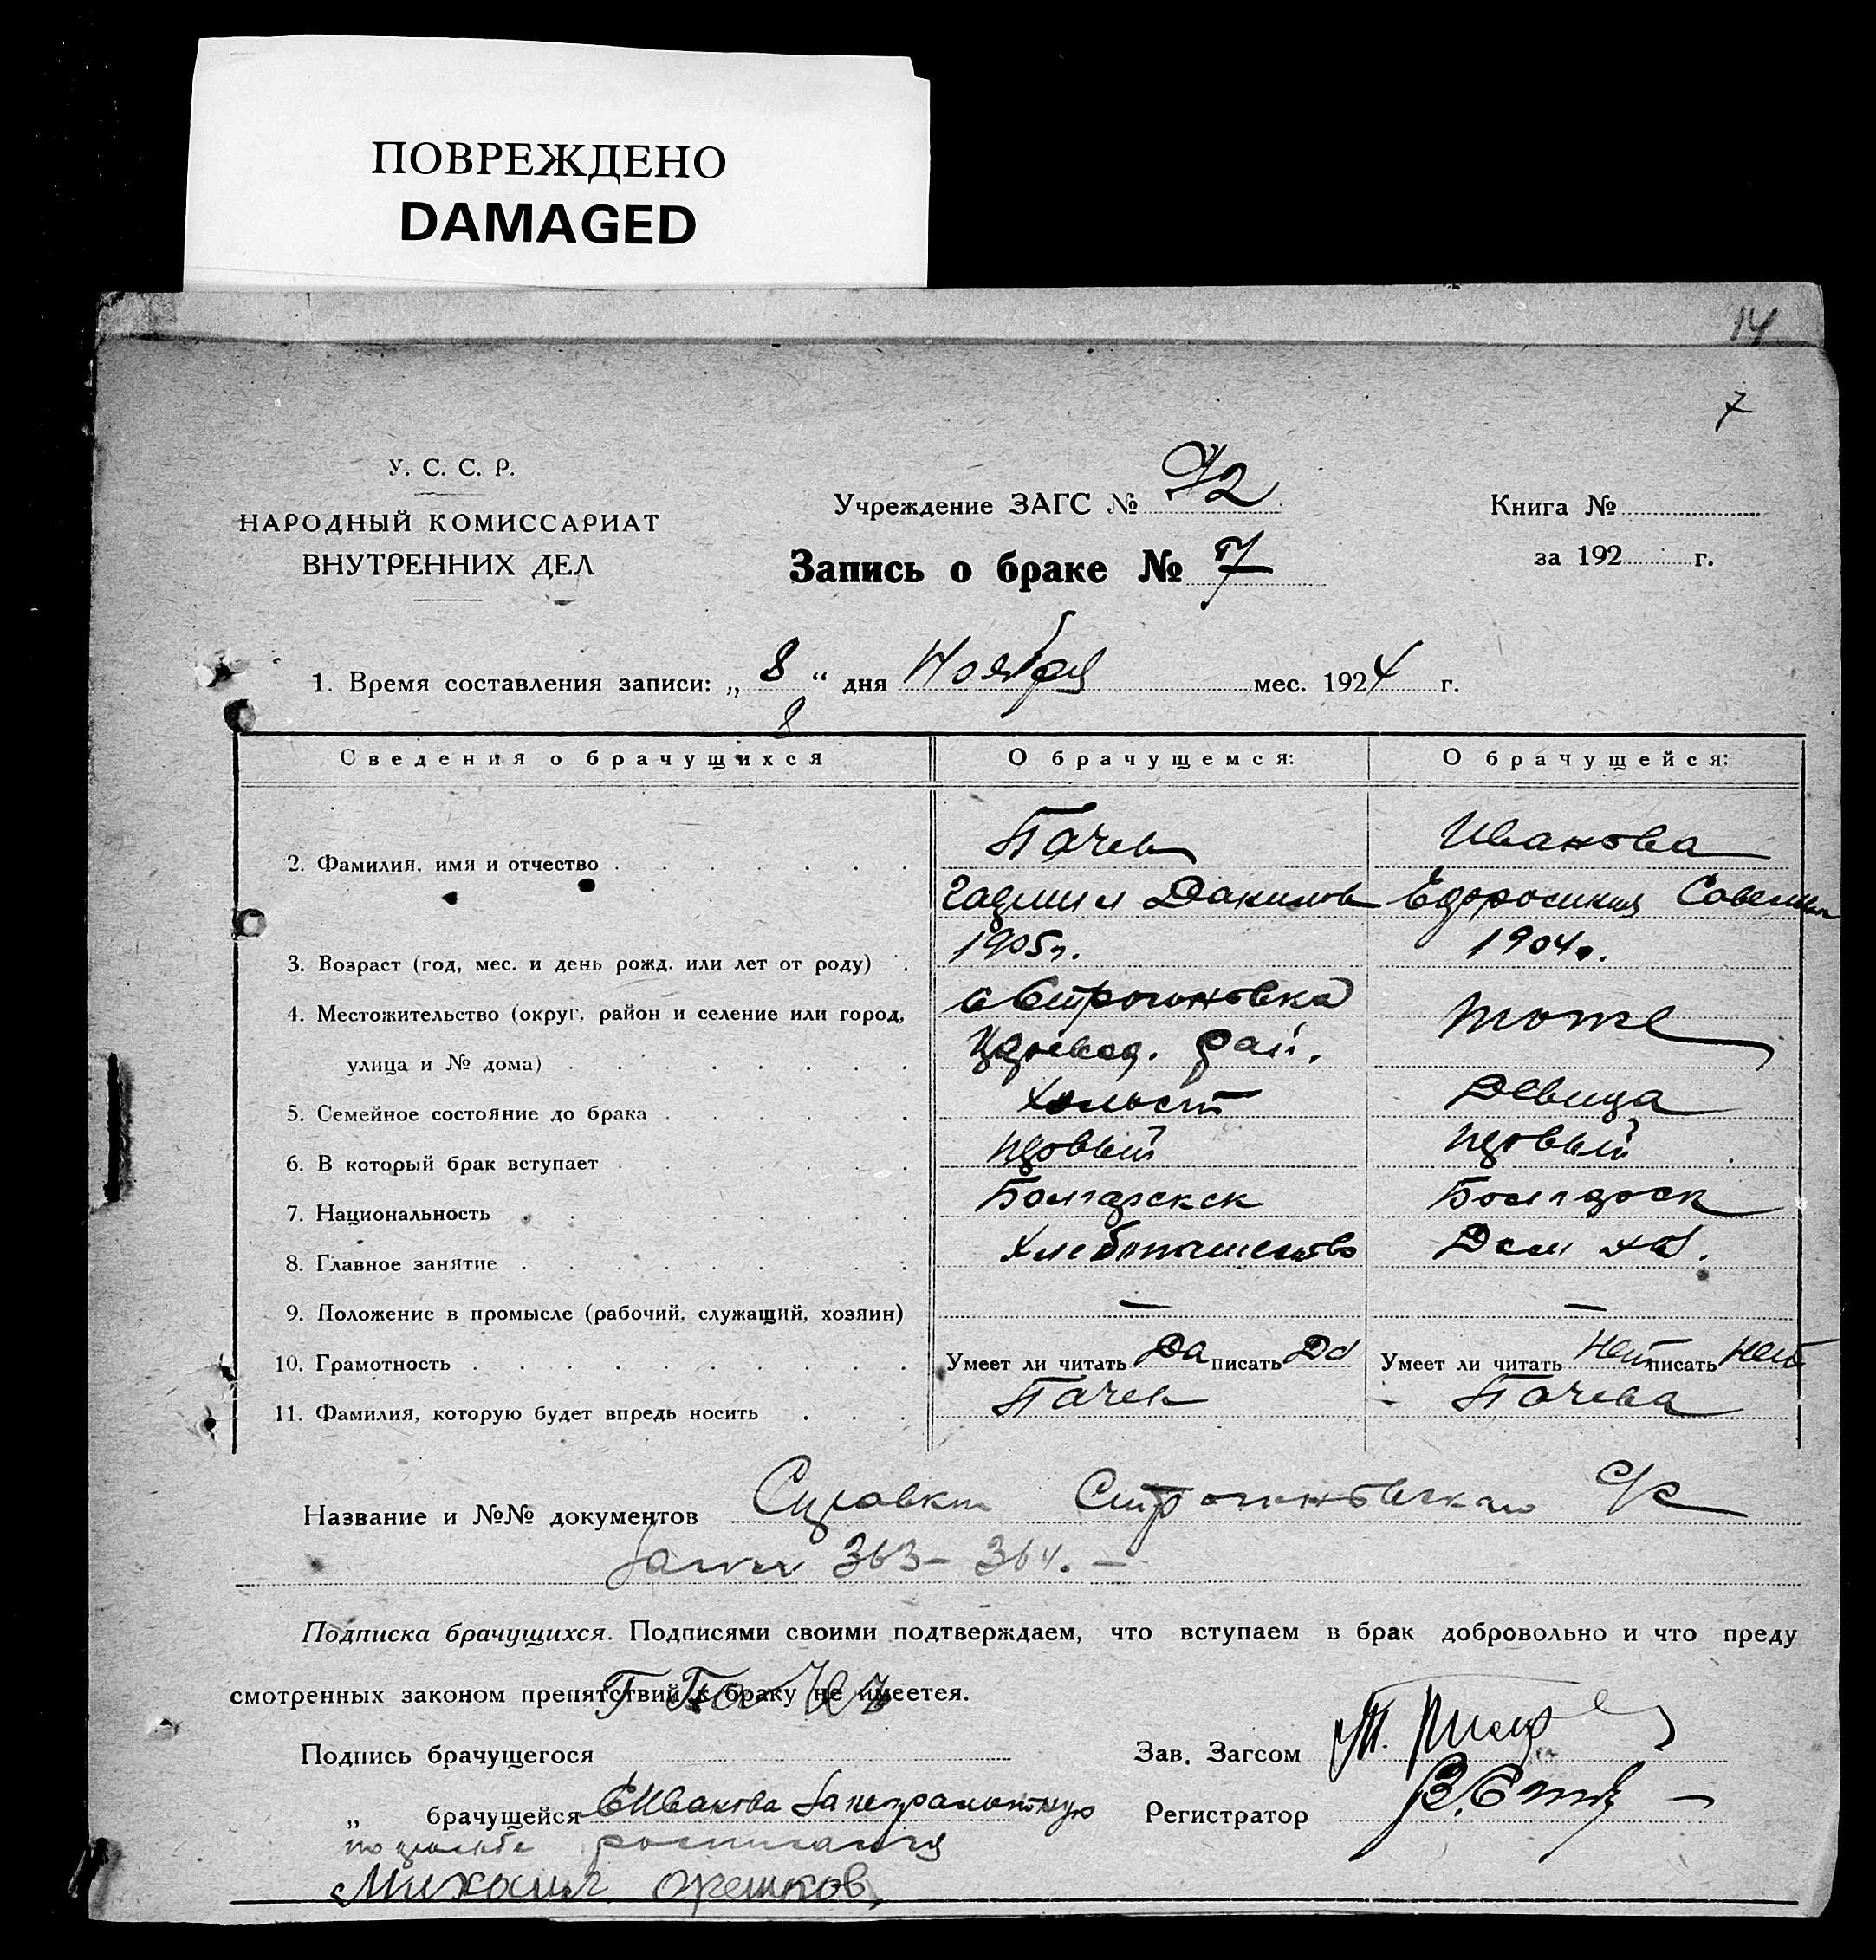 ПОВРЕЖДЕНО
DAMAGED
14
7
У. С. С. Р.
НАРОДНЫЙ КОМИССАРИАТ
ВНУТРЕННИХ ДЕЛ
Учреждение ЗАГС № 72
Запись о браке № 7
Книга №
за 192 г.
1. Время составления записи: „ 8 “ дня Ноября мес. 1924 г.
8
Сведения о брачущихся О брачущемся: О брачущейся:
2. Фамилия, имя и отчество Пачев Иванова
Данилов
3. Возраст (год, мес. и день рожд. или лет от роду) 1905г. 1904г.
4. Местожительство (округ, район и селение или город, с Строгоновка тоже
улица и № дома) рай.
5. Семейное состояние до брака Холост Девица
6. В который брак вступает первый первый
7. Национальность
8. Главное занятие Хлебопашество Дом хоз.
9. Положение в промысле (рабочий, служащий, хозяин) — —
10. Грамотность Умеет ли читать Да писать Да Умеет ли читать Нет писать Нет
11. Фамилия, которую будет впредь носить Пачев Пачева
Название и №№ документов Справки Строгоновского с/с
за № 363 – 364. –
Подписка брачущихся. Подписями своими подтверждаем, что вступаем в брак добровольно и что преду
смотренных законом препятствий к браку не имеется.
Подпись брачущегося Зав. Загсом
„ брачущейся Е Иванова за неграмотную Регистратор
по просьбе росписался
Михаил Орешков